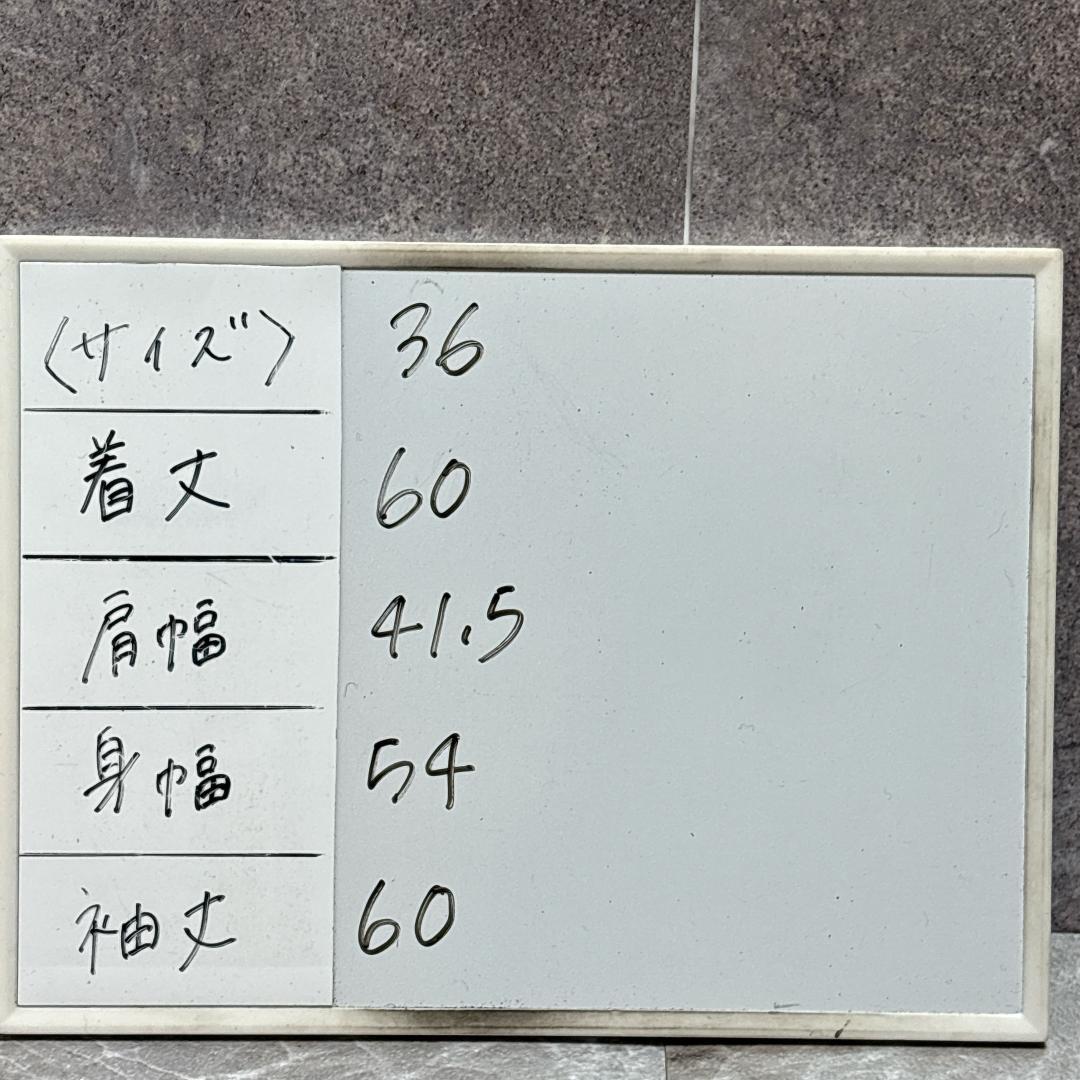 〈サイズ〉 36
着丈 60
肩幅 41.5
身幅 54
袖丈 60